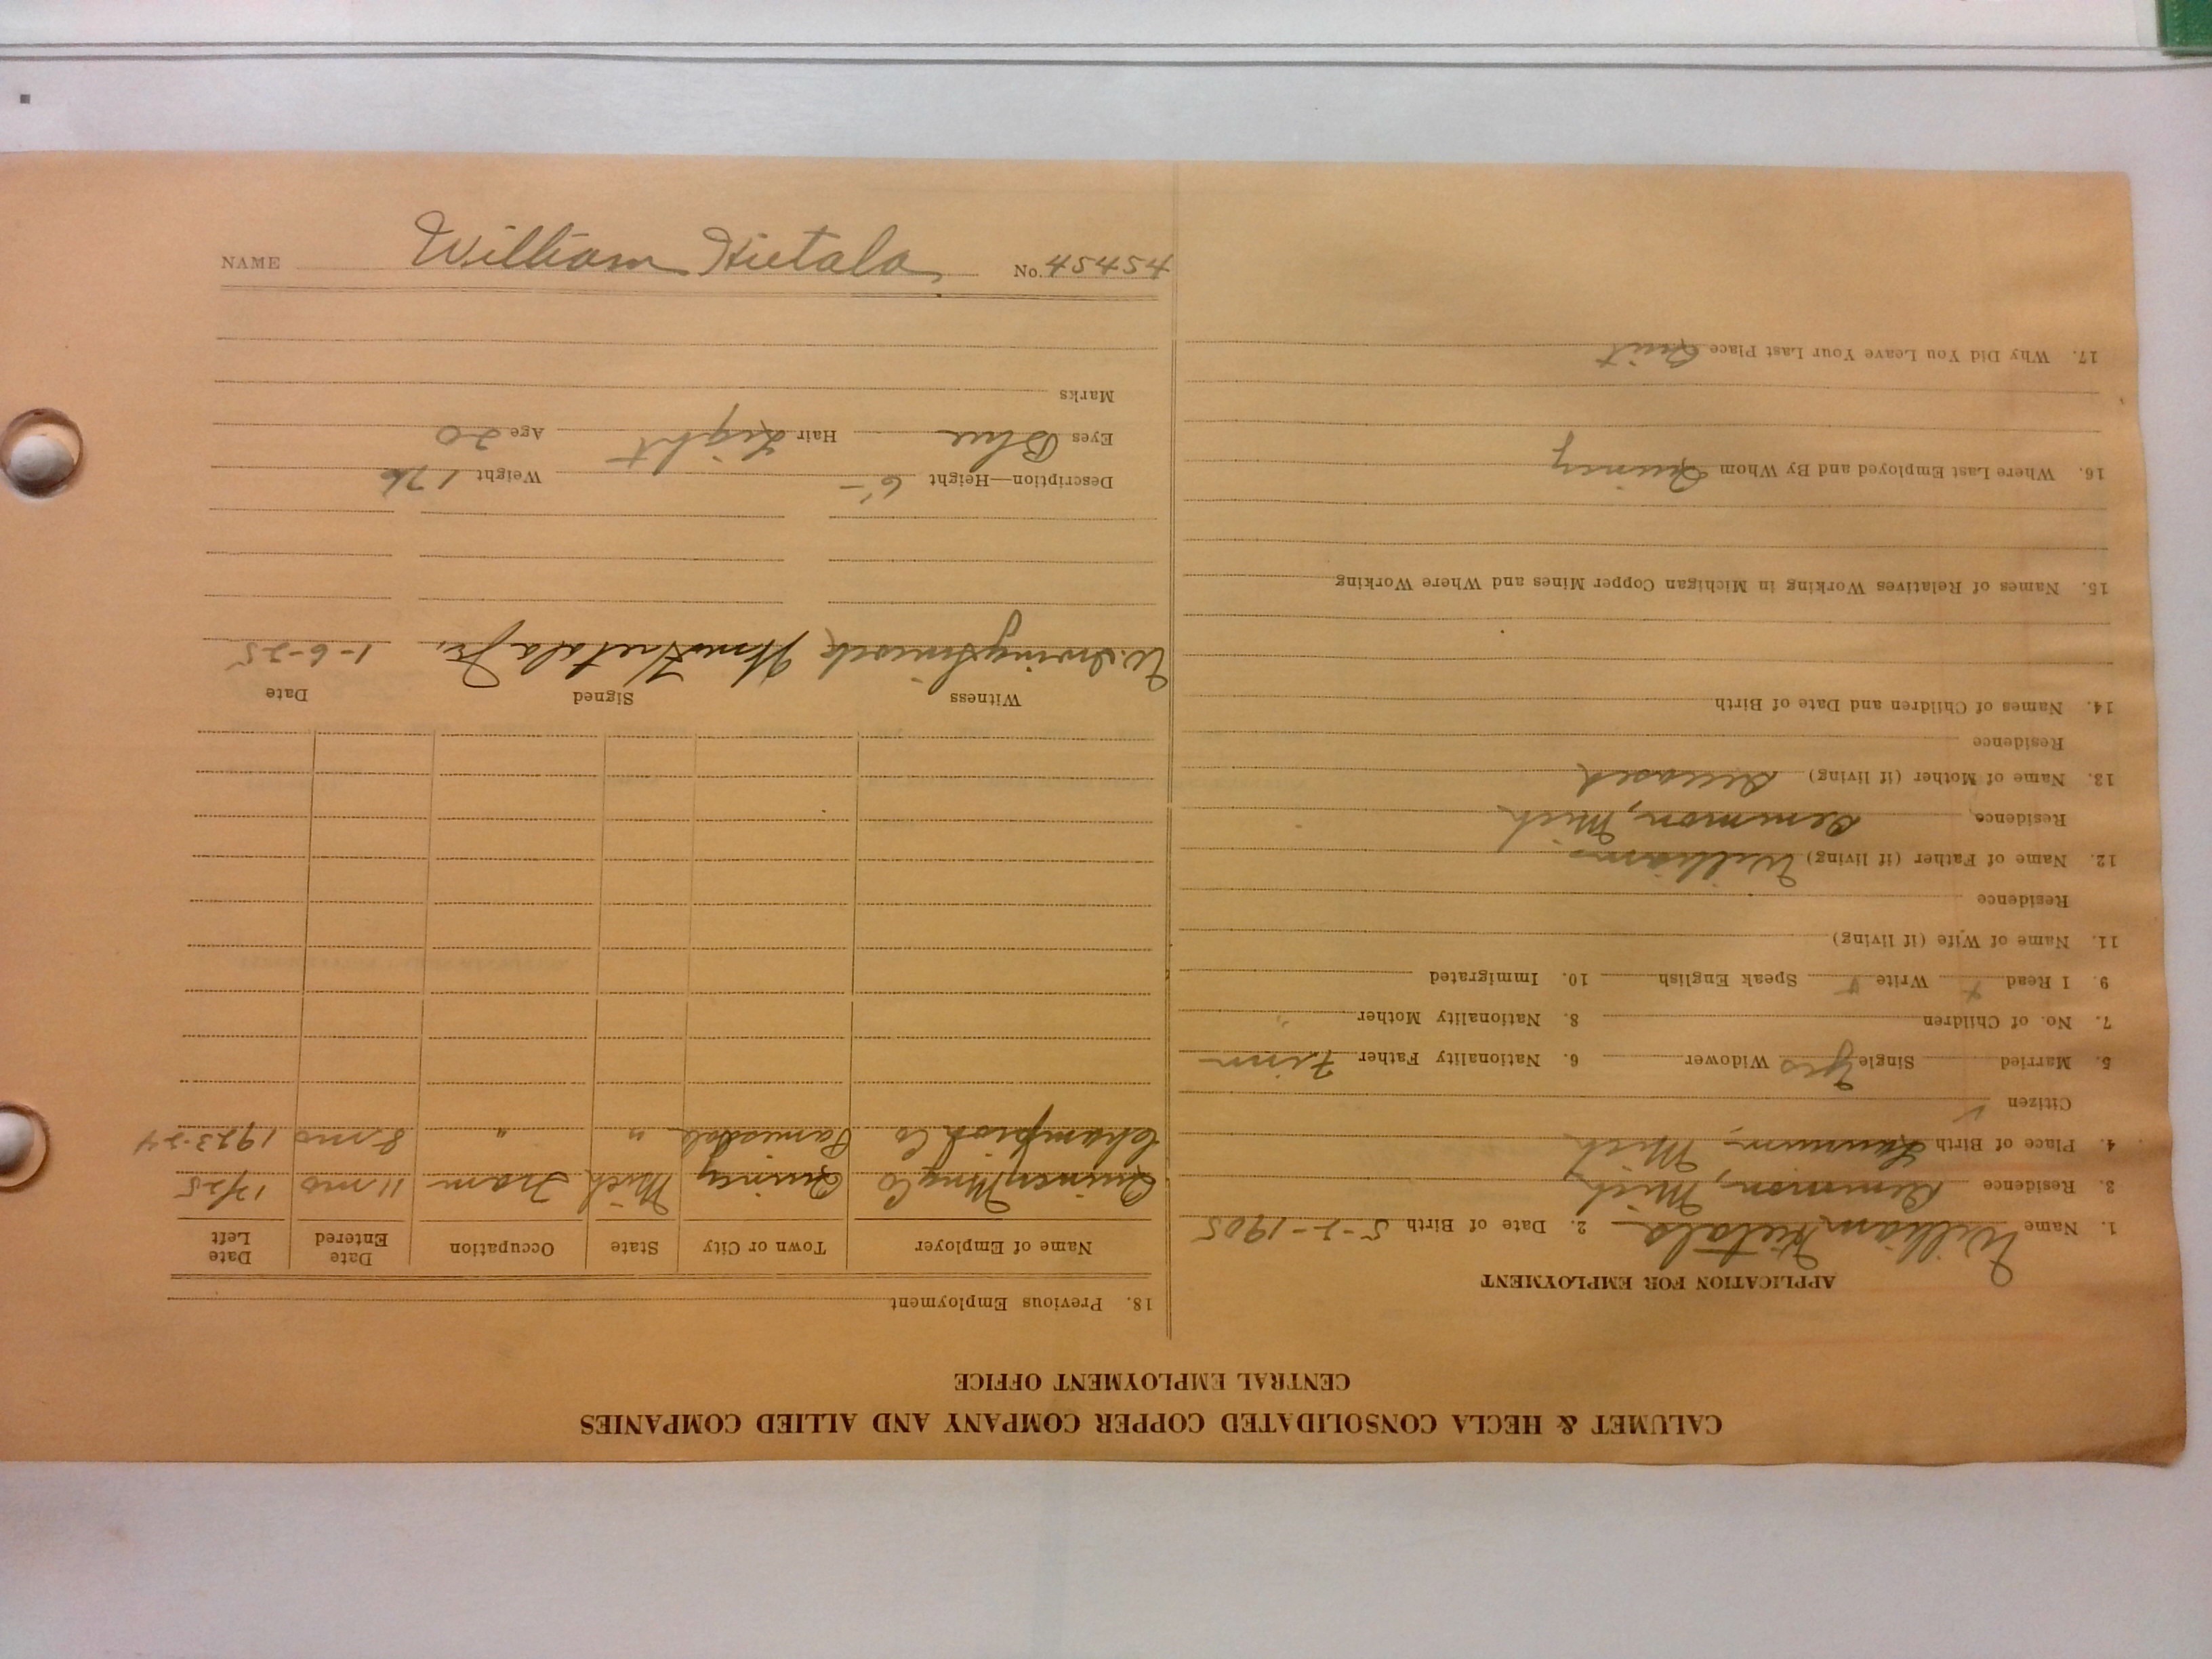 CALUMET & HECLA CONSOLIDATED COPPER COMPANY AND ALLIED COMPANIES
CENTRAL EMPLOYMENT OFFICE
APPLICATION FOR EMPLOYMENT
1. Name William Hietala 2. Date of Birth 5-2-1905
3. Residence Demmon, Mich
4. Place of Birth Laurium, Mich
Citizen
5. Married Single Yes Widower 6. Nationality Father Finn
7. No. of Children 8. Nationality Mother "
9. I Read Write Speak English 10. Immigrated
11. Name of Wife (if living)
Residence
12. Name of Father (if living) William
Residence Demmon, Mich
13. Name of Mother (if living) Deceased
Residence
14. Names of Children and Date of Birth
15. Names of Relatives Working in Michigan Copper Mines and Where Working
16. Where Last Employed and By Whom Quincy
17. Why Did You Leave Your Last Place Quit
18. Previous Employment
Name of Employer Town or City State Occupation Date Entered Date Left
Quincy Mng Co Quincy Mich Tram 11 mo
Champion Co Painesdale " " 8 mo 1923-24
Witness Signed Date
Wm Hietala Jr. 1-6-25
Description—Height 6'- Weight 176
Eyes Blue Hair Light Age 20
Marks
NAME William Hietala No. 45454